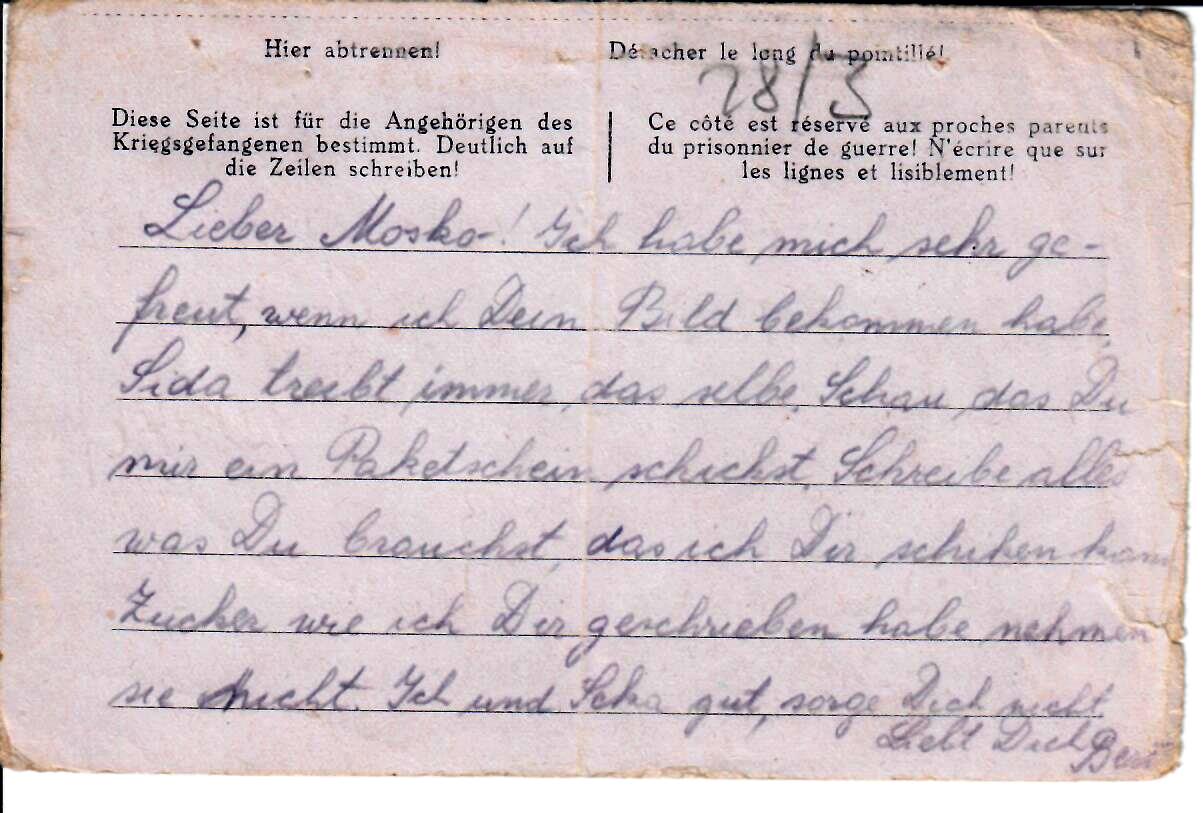 Hier abtrennen!
Détacher le long du pointillé!
28/3
Diese Seite ist für die Angehörigen des
Kriegsgefangenen bestimmt. Deutlich auf
die Zeilen schreiben!
Ce côté est réservé aux proches parents
du prisonnier de guerre! N'écrire que sur
les lignes et lisiblement!
Lieber Mosko! Ich habe mich sehr ge-
freut, wenn ich Dein Bild bekommen habe.
Sida treibt immer das selbe. Schau, das Du
mir ein Paketschein schickst. Schreibe alles
was Du brauchst, das ich Dir schiken kann
Zucker wie ich Dir geschrieben habe nehmen
sie nicht. Ich und Seka gut, sorge Dich nicht
Liebt Dich